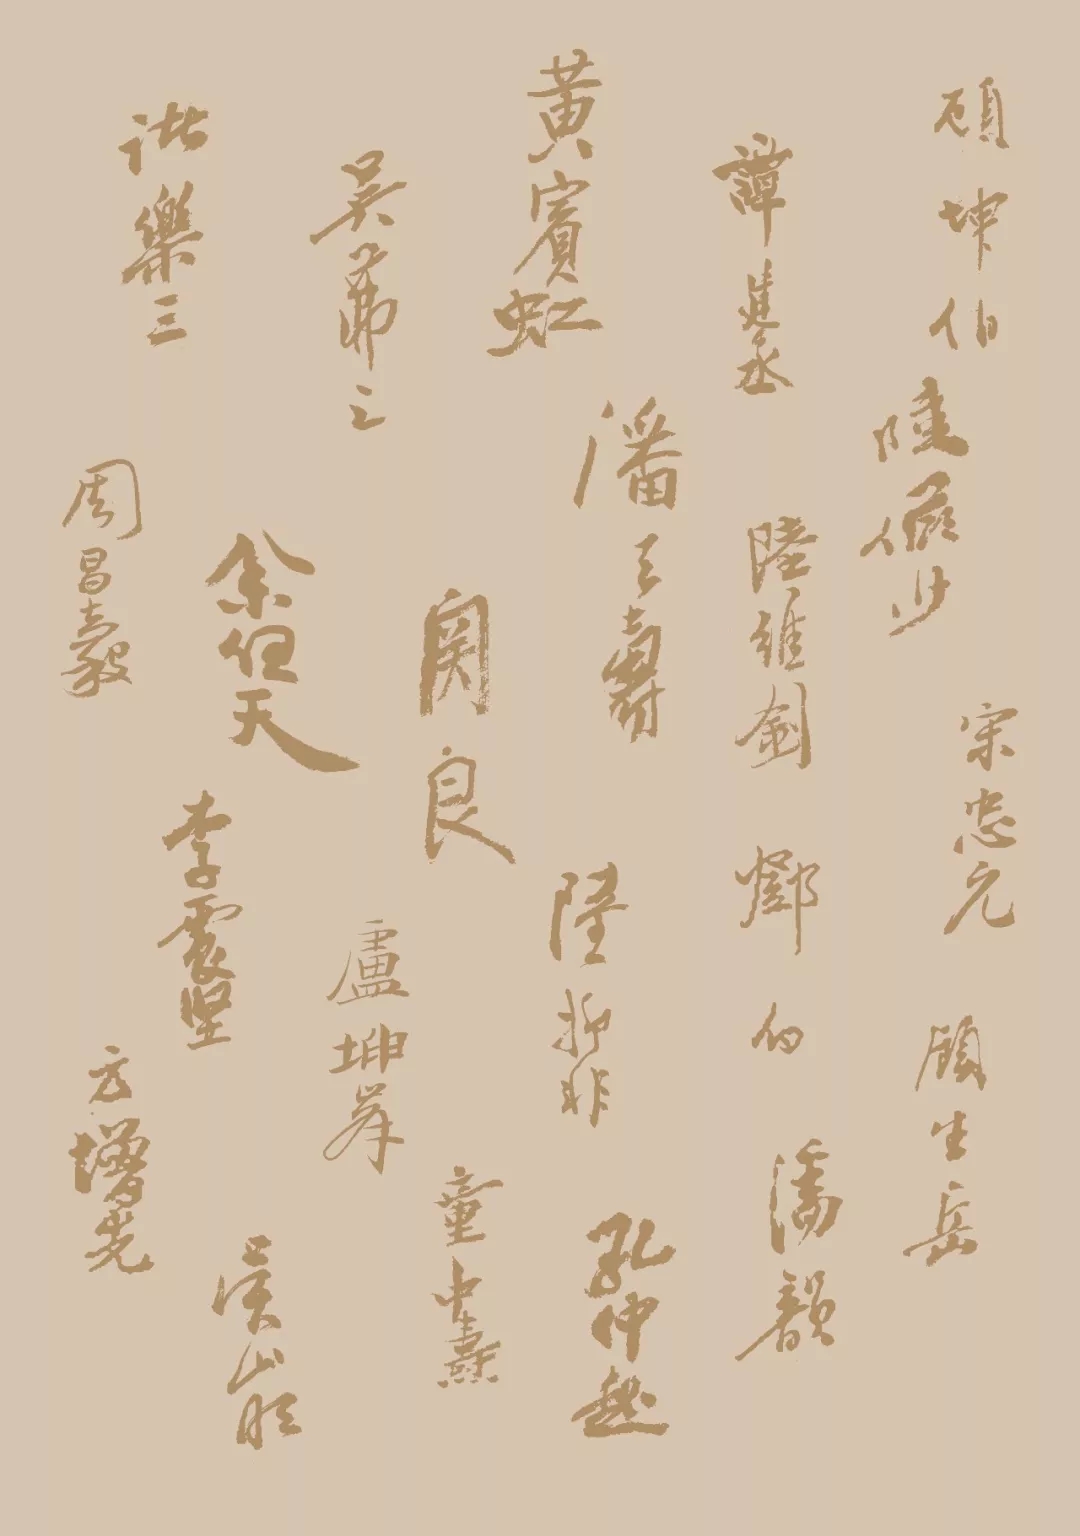 顧坤伯
陸儼少
宋忠元
顧生岳
譚建丞
陸維釗
鄧白
潘韻
黃賓虹
潘天壽
陸抑非
孔仲起
関良
童中燾
吳茀之
盧坤峯
吳山明
諸樂三
余任天
李震坚
周昌榖
方增先